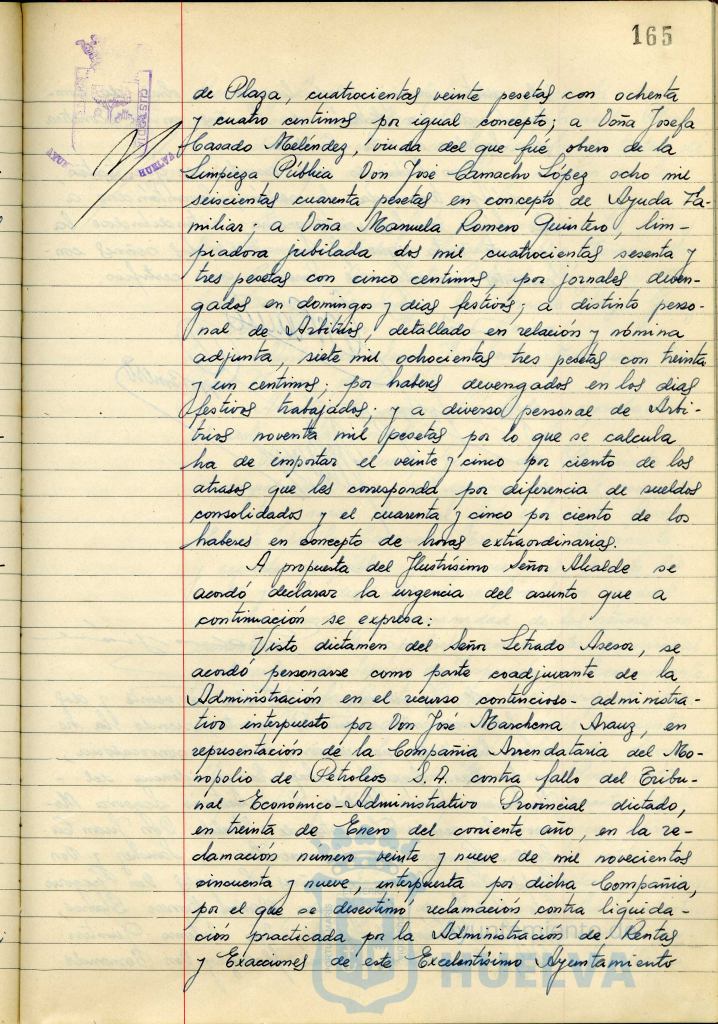 165
de Plaza, cuatrocientas veinte pesetas con ochenta
y cuatro centimos por igual concepto; a Doña Josefa
Casado Meléndez, viuda del que fué obrero de la
Limpieza Pública Don José Camacho López ocho mil
seiscientas cuarenta pesetas en concepto de Ayuda Fa-
miliar; a Doña Manuela Romero Quintero, lim-
piadora jubilada dos mil cuatrocientas sesenta y
tres pesetas con cinco centimos, por jornales deven-
gados en domingos y dias festivos; a distinto perso-
nal de Arbitrios, detallado en relación y nómina
adjunta, siete mil ochocientas tres pesetas con treinta
y un centimos; por haberes devengados en los dias
festivos trabajados; y a diverso personal de Arbi-
trios noventa mil pesetas por lo que se calcula
ha de importar el veinte y cinco por ciento de los
atrasos que les corresponda por diferencia de sueldos
consolidados y el cuarenta y cinco por ciento de los
haberes en concepto de horas extraordinarias.
A propuesta del Ilustrísimo Señor Alcalde se
acordó declarar la urgencia del asunto que a
continuación se expresa:
Visto dictamen del Señor Letrado Asesor, se
acordó personarse como parte coadjuvante de la
Administración en el recurso contencioso-administra-
tivo interpuesto por Don José Marchena Arauz, en
representación de la Compañia Arrendataria del Mo-
nopolio de Petróleos S.A. contra fallo del Tribu-
nal Económico-Administrativo Provincial dictado,
en treinta de Enero del corriente año, en la re-
clamación número veinte y nueve de mil novecientos
cincuenta y nueve, interpuesta por dicha Compañia,
por el que se desestimó reclamación contra liquida-
ción practicada por la Administración de Rentas
y Exacciones de este Excelentísimo Ayuntamiento
HUELVA
HUELVA